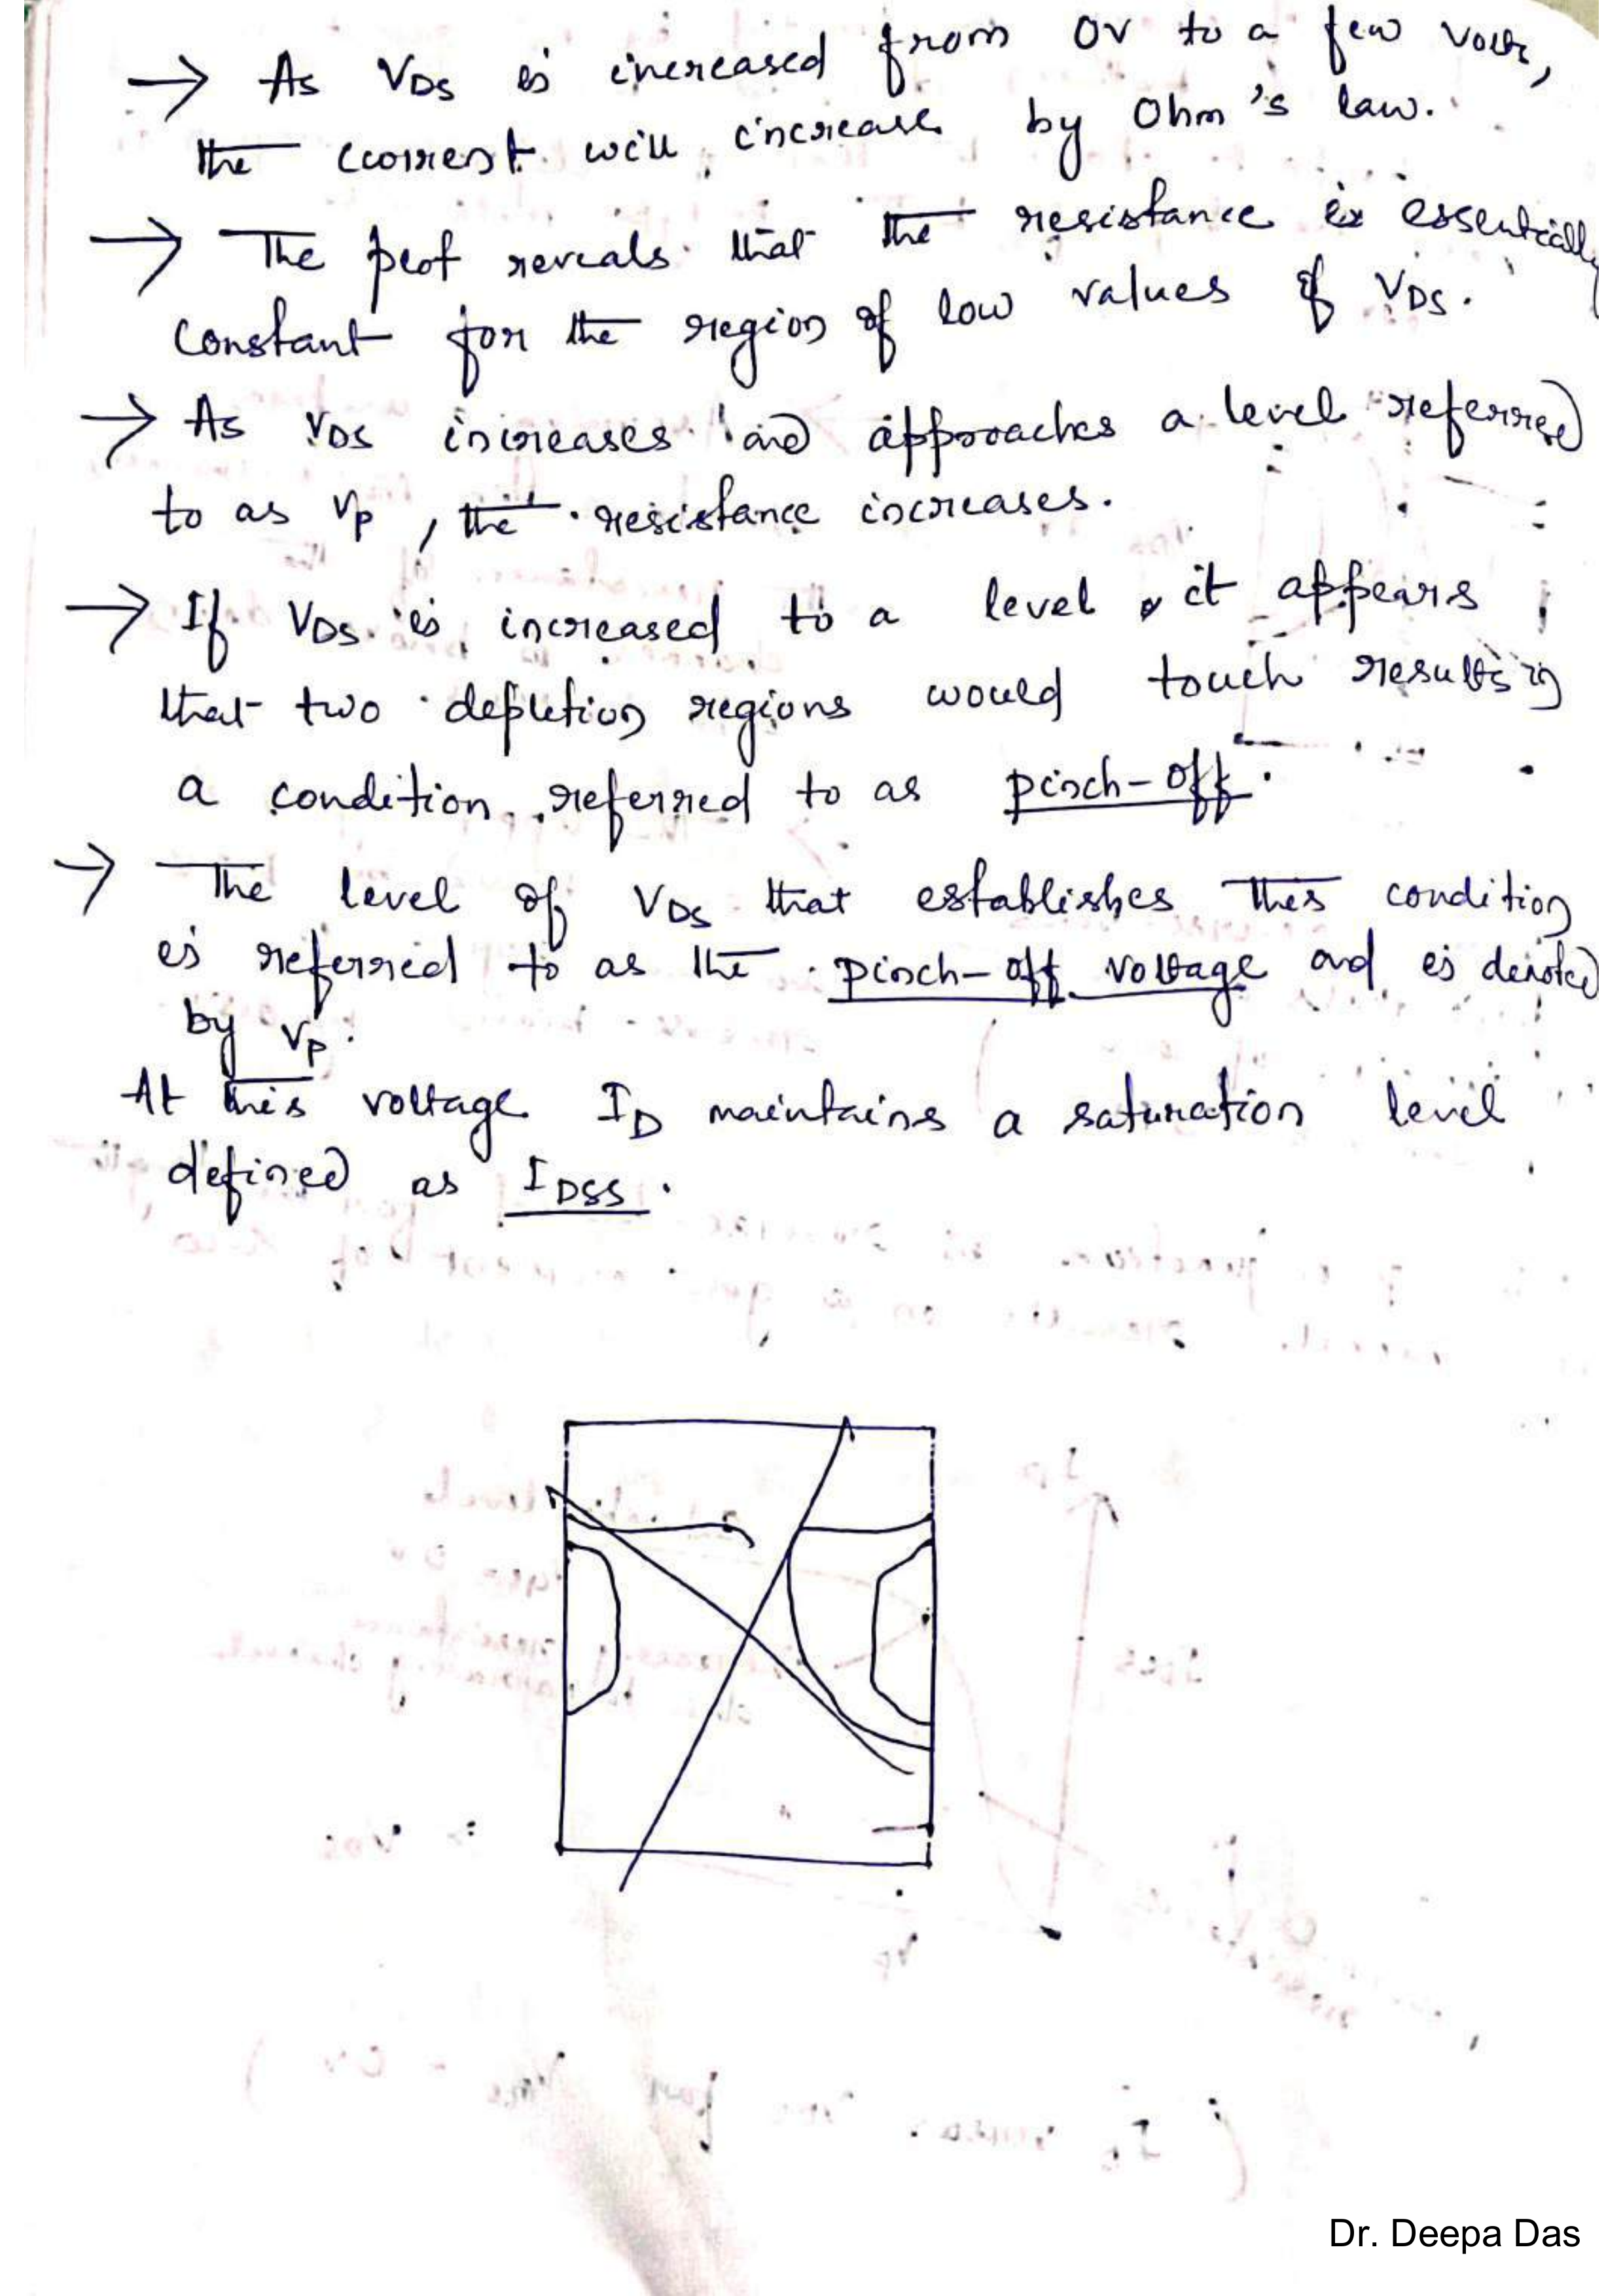 → As VDS is increased from 0V to a few volts,
the current will increase by Ohm's law.
→ The plot reveals that the resistance is essentially
constant for the region of low values of VDS.
→ As VDS increases and approaches a level referred
to as VP, the resistance increases.
→ If VDS is increased to a level it appears
that two depletion regions would touch resulting
a condition referred to as pinch-off.
→ The level of VDS that establishes this condition
is referred to as the pinch-off voltage and is denoted
by VP.
At this voltage ID maintains a saturation level
defined as IDSS.
Dr. Deepa Das